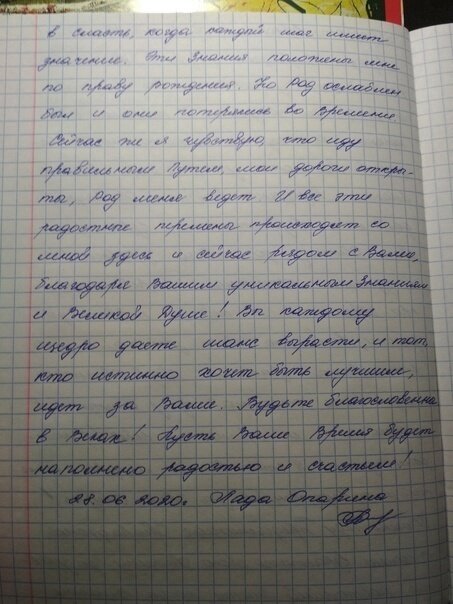 в сласть, когда каждый шаг имеет
значение. Эти Знания положены мне
по праву рождения. Но Род ослаблен
был и они потерялись во Времени.
Сейчас же я чувствую, что иду
правильным Путем, мои дороги откры-
ты, Род меня ведет. И все эти
радостные перемены происходят со
мной здесь и сейчас рядом с Вами,
благодаря Вашим уникальным Знаниям
и Великой Душе! Вы каждому
щедро даете шанс вырасти, и тот,
кто истинно хочет быть лучшим,
идет за Вами. Будьте благословенна
в Веках! Пусть Ваше Время будет
наполнено радостью и счастьем!
28.06.2020г. Лада Опарина